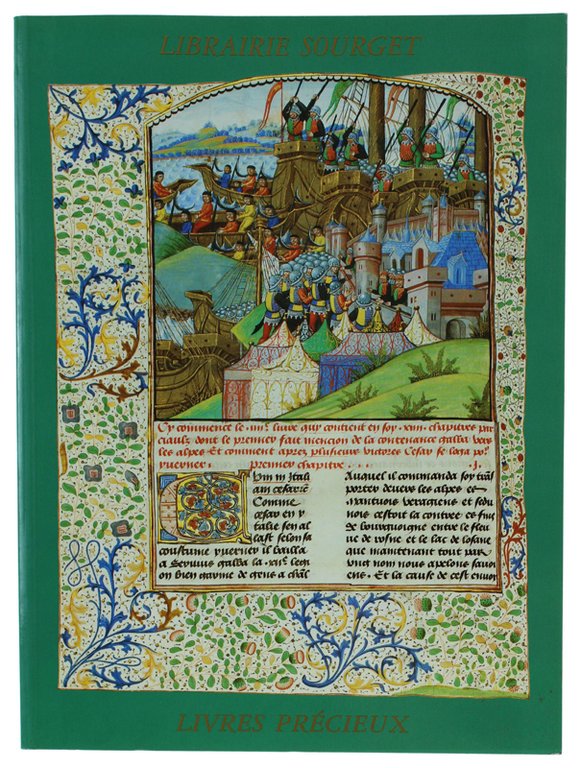 LIBRAIRIE SOURGET
Cy commence le .iiii.e livre qui contient en soy .xviii. chapitres par
ciaulx dont le premier fait mencion de la contenance galba vers
les alpes Et comment aprez plusieurs victores Cesar se loga por
yverner . premier chapitre . . . . . .j.
um in Itali
am cesar
Comme
cesar en y
talie sen al
last selon sa
coustume yverner il bailla
a Servius galba la .xii.e legi
on bien garnie de gens a chal
Auquel il commanda soy tran
porter devers les alpes es
Nantuois veragiens et sedu
nois cestoit la contree ce fut
de bourgoigne entre le fleu
ve de rosne et le lac de losane
que maintenant tout par
ung nom nous apelons savoi
ens . Et la cause de cest envoy
LIVRES PRÉCIEUX